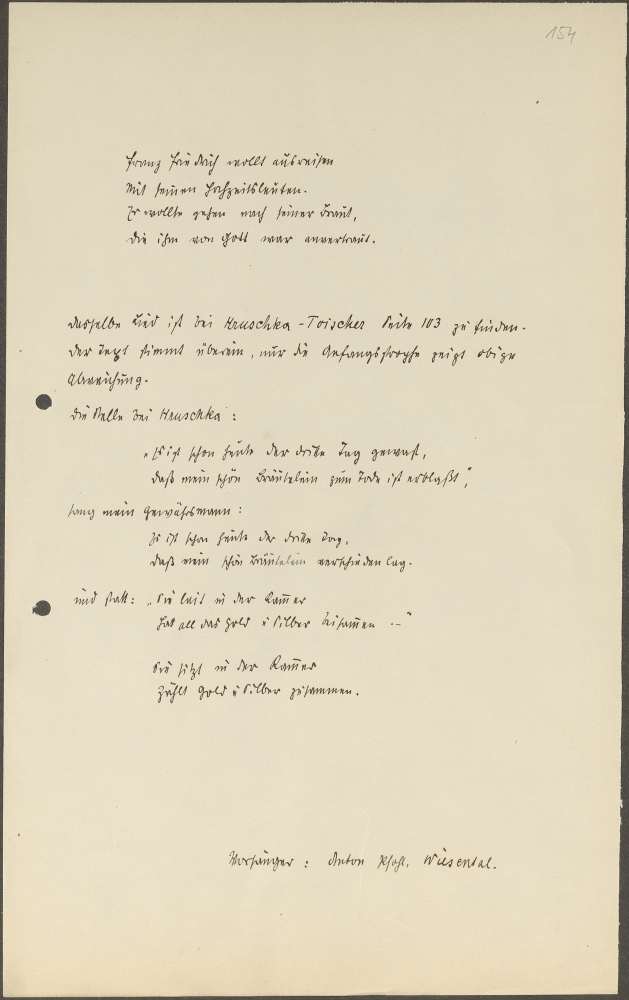 154
Franz Friedrich wollt ausreisen
Mit seinen Hochzeitsleuten.
Er wollte gehen nach seiner Braut,
die ihm von Gott war anvertraut.
Dasselbe Lied ist bei Hruschka - Toischer Seite 103 zu finden.
Der Text stimmt überein, nur die Anfangsstrophe zeigt obige
Abweichung.
Die Stelle bei Hruschka:
„Es ist schon heute der dritte Tag gewest,
daß mein schön Bräutelein zum Tode ist erblaßt",
sang mein Gewährsmann:
Es ist schon heute der dritte Tag,
daß mein schön Bräutelein verschieden lag.
und statt: „Sie leit in der Kam̄er
hat all das Gold u Silber beisam̄en --"
Sie sitzt in der Kam̄er
Zählt Gold u Silber zusammen.
Vorsänger: Anton Pfohl, Wiesental.